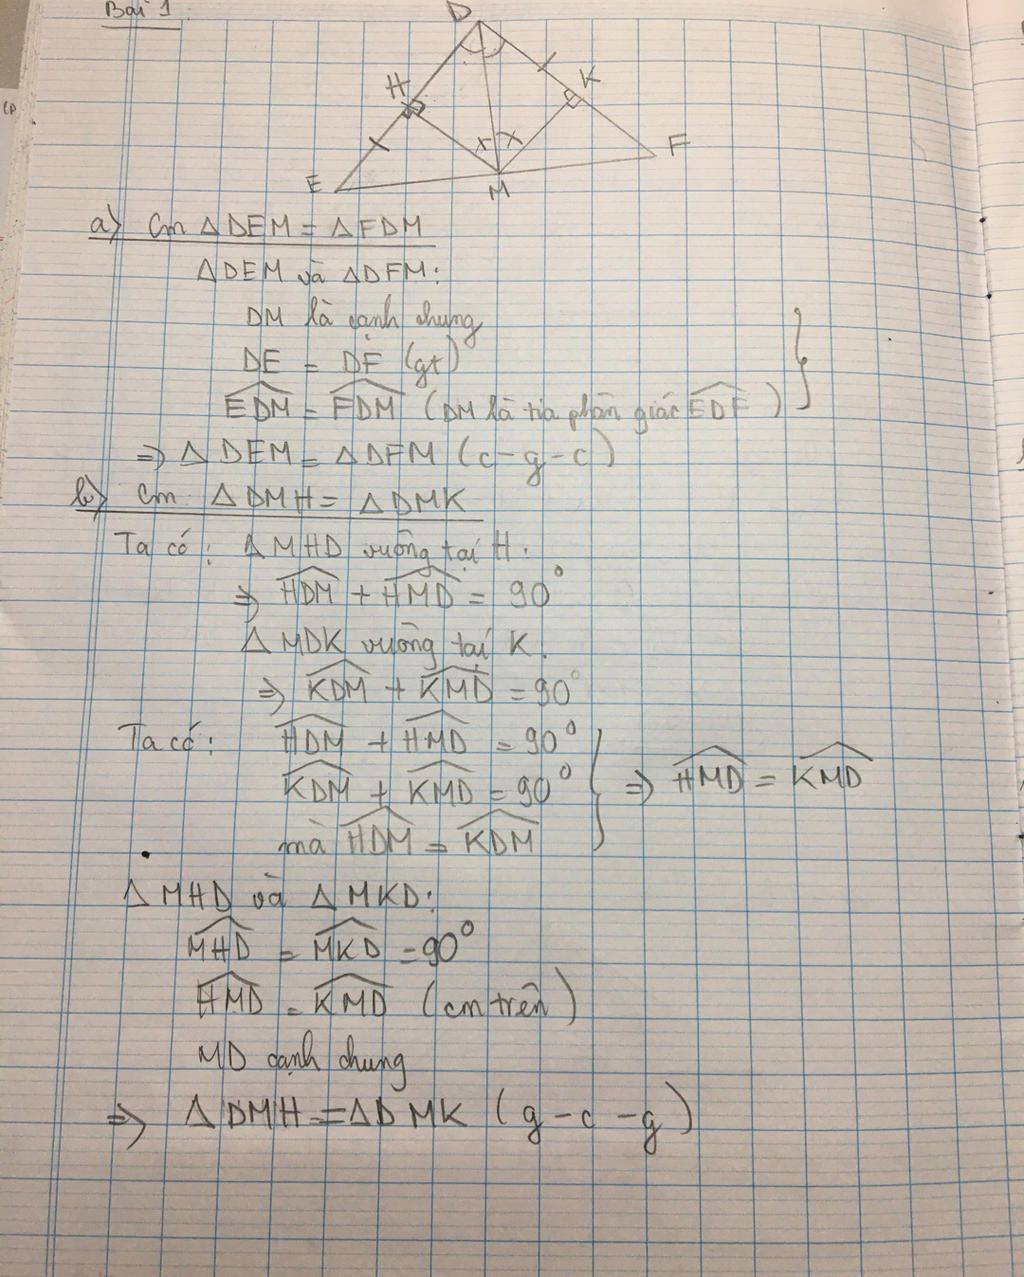 Bài 1
D
H
K
F
E
M
a) Cm △DEM = △FDM
△DEM và △DFM:
DM là cạnh chung
DE = DF (gt)
EDM = FDM (DM là tia phân giác EDF)
⇒ △DEM = △DFM (c-g-c)
b) Cm △DMH = △DMK
Ta có: △MHD vuông tại H.
⇒ HDM + HMD = 90°
△MDK vuông tại K.
⇒ KDM + KMD = 90°
Ta có: HDM + HMD = 90°
KDM + KMD = 90° ⇒ HMD = KMD
mà HDM = KDM
△MHD và △MKD:
MHD = MKD = 90°
HMD = KMD (cm trên)
MD cạnh chung
⇒ △DMH = △DMK (g-c-g)